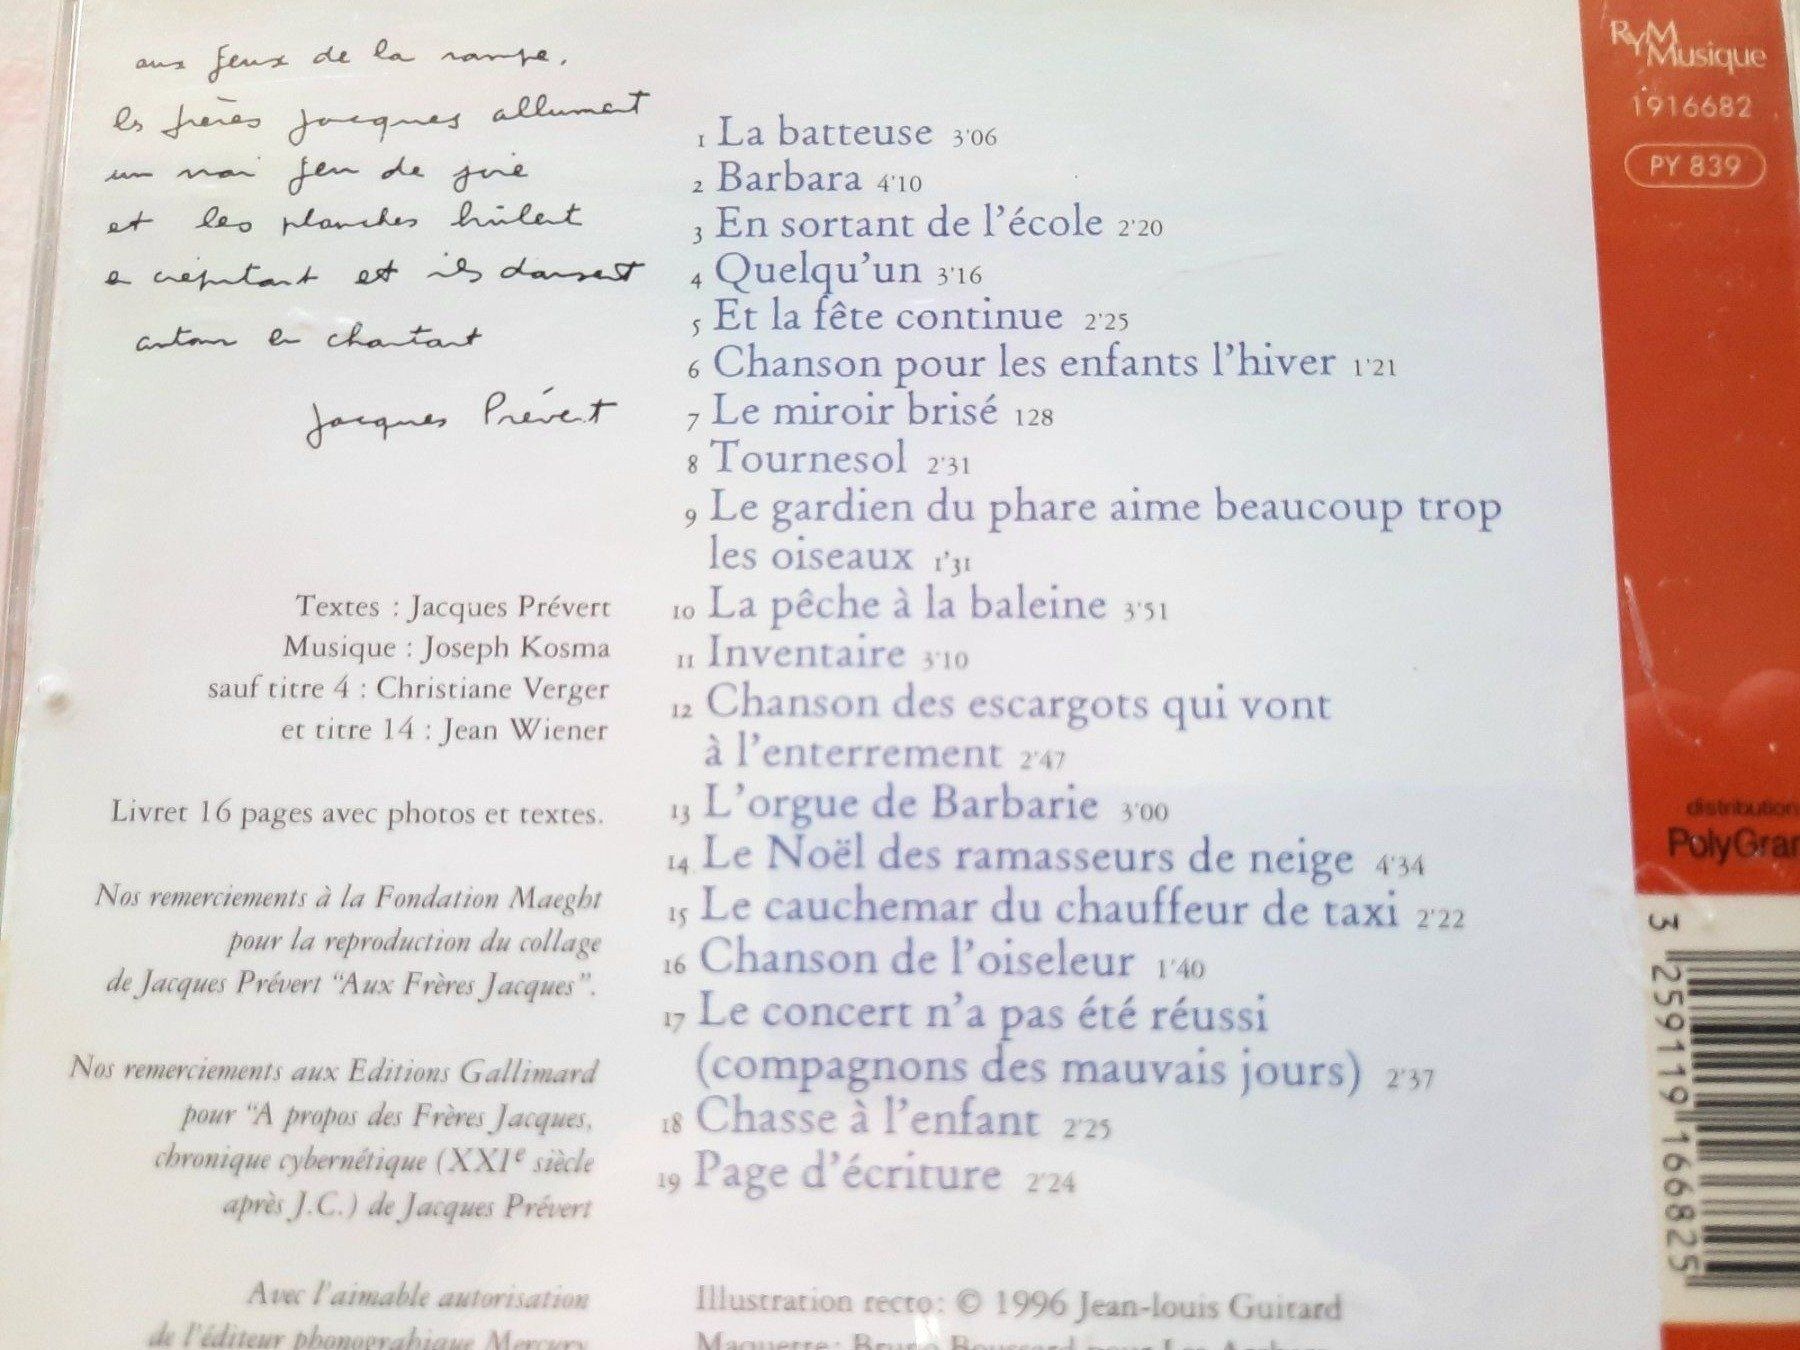 aux feux de la rampe,
les frères jacques allument
un vrai feu de joie
et les planches brûlent
en crépitant et ils dansent
autour en chantant
Jacques Prévert
Textes : Jacques Prévert
Musique : Joseph Kosma
sauf titre 4 : Christiane Verger
et titre 14 : Jean Wiener
Livret 16 pages avec photos et textes.
Nos remerciements à la Fondation Maeght
pour la reproduction du collage
de Jacques Prévert “Aux Frères Jacques”.
Nos remerciements aux Editions Gallimard
pour “A propos des Frères Jacques,
chronique cybernétique (XXIe siècle
après J.C.) de Jacques Prévert
Avec l'aimable autorisation
de l'éditeur phonographique Mercury
1 La batteuse 3'06
2 Barbara 4'10
3 En sortant de l'école 2'20
4 Quelqu'un 3'16
5 Et la fête continue 2'25
6 Chanson pour les enfants l'hiver 1'21
7 Le miroir brisé 128
8 Tournesol 2'31
9 Le gardien du phare aime beaucoup trop
les oiseaux 1'31
10 La pêche à la baleine 3'51
11 Inventaire 3'10
12 Chanson des escargots qui vont
à l'enterrement 2'47
13 L'orgue de Barbarie 3'00
14 Le Noël des ramasseurs de neige 4'34
15 Le cauchemar du chauffeur de taxi 2'22
16 Chanson de l'oiseleur 1'40
17 Le concert n'a pas été réussi
(compagnons des mauvais jours) 2'37
18 Chasse à l'enfant 2'25
19 Page d'écriture 2'24
Illustration recto: © 1996 Jean-louis Guitard
Maquette: Bruno Boussard pour Les
RYM
Musique
1916682
PY 839
distribution
PolyGram
3 259119 166825